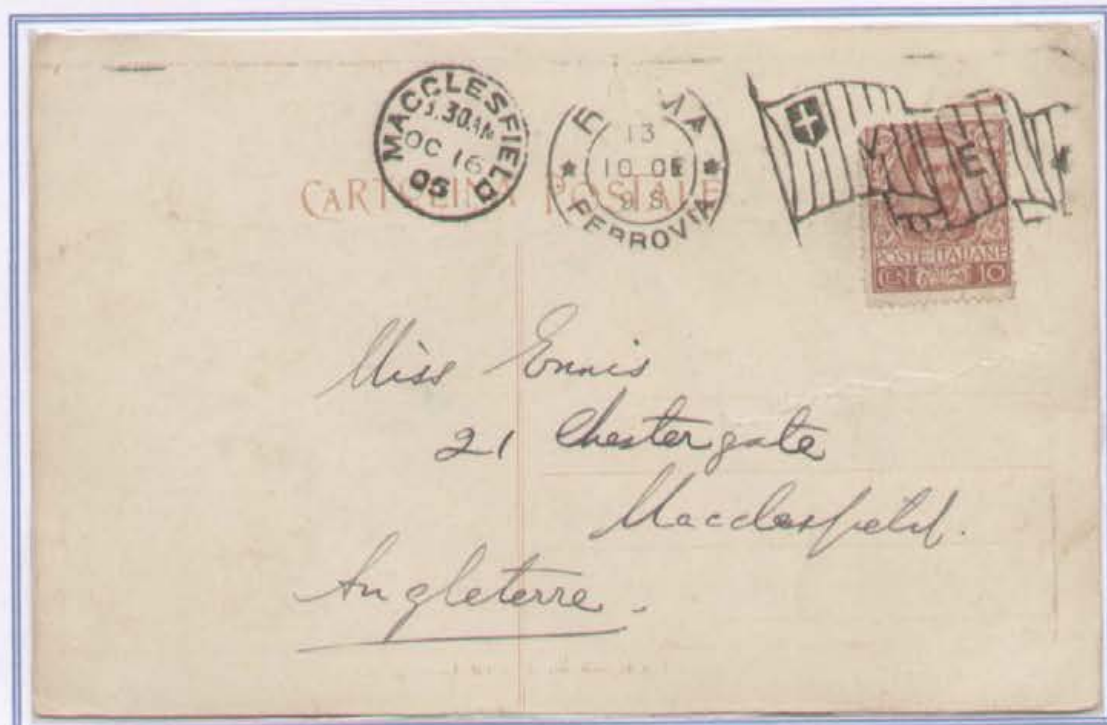 MACCLESFIELD
.30AM
OC 16
05
13
10
FERROVIA
V E
CARTOLINA POSTALE
POSTE ITALIANE
CEN 10
Miss Ennis
21 Chestergate
Macclesfield.
Angleterre.